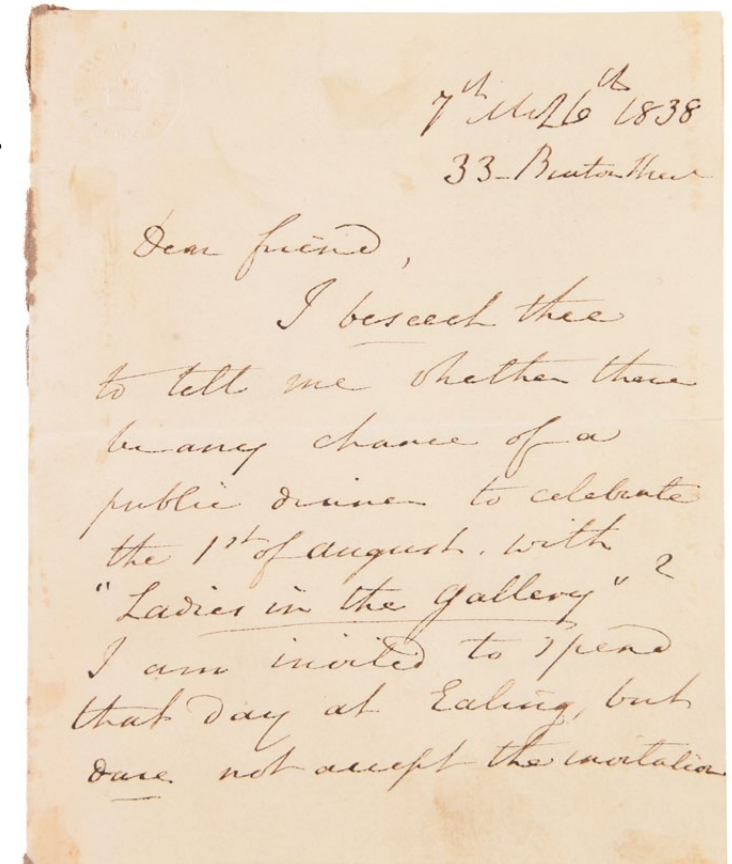 7th Mo 26th 1838
33 - Bruton Street
Dear friend,
I beseech thee
to tell me whether there
be any chance of a
public dinner to celebrate
the 1st of august. with
"Ladies in the gallery"?
I am invited to spend
that day at Ealing, but
dare not accept the invitation